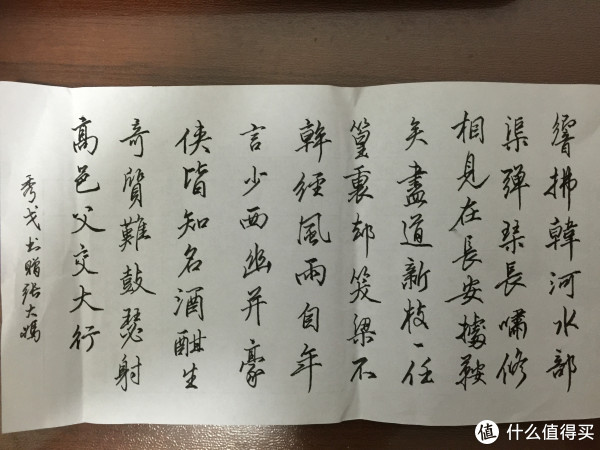 響拂韓河水部
渠弹琹長嘯修
相見在長安據鞍
矣盡道新枝一任
篁裏却笑梁不
幹經風雨自年
言少西幽并豪
侠皆知名酒酣生
奇質難鼓瑟射
高邑父交大行
秀戈书赠张大妈
值 什么值得买